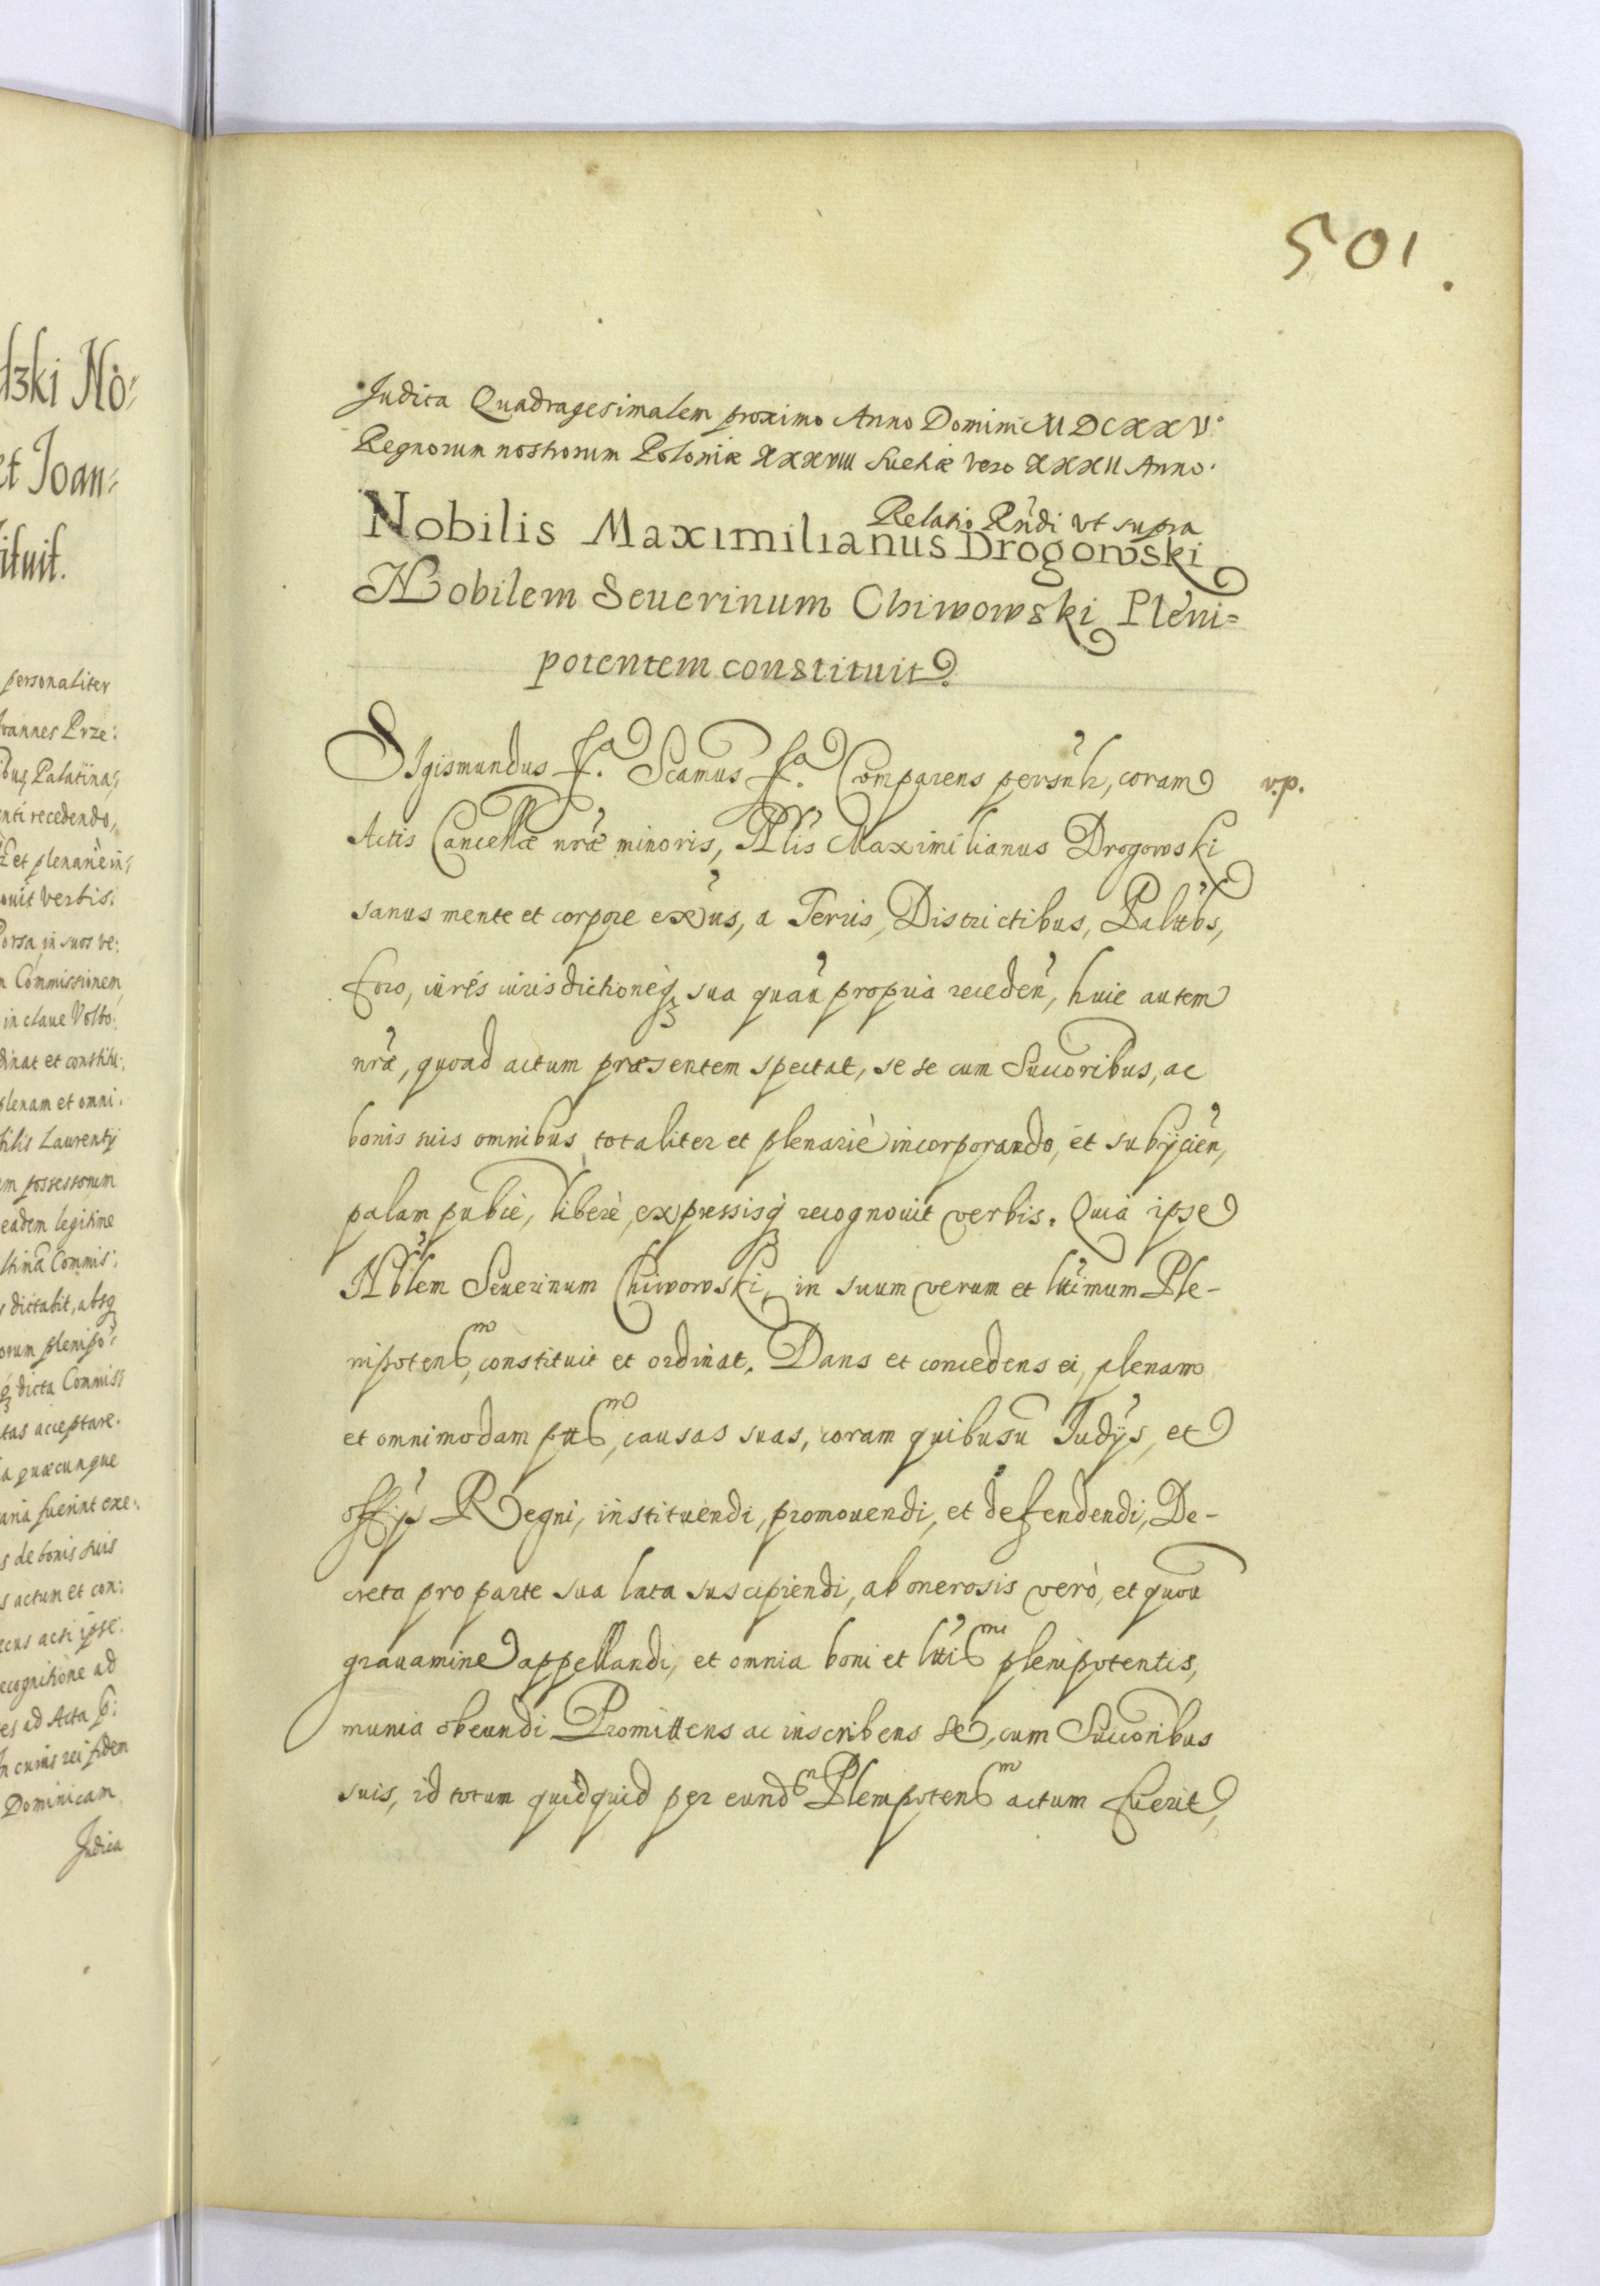 501.
dzki No=
et Joan=
ituit.
personaliter
Joannes Prze:
Palatina:
enti recedendo,
et plenariè in:
ouit verbis.
in suos ve:
Commissionem
in claue Volbo:
dinat et constitu:
plenam et omni:
Laurentij
possessorum
eadem legitime
Commis:
dictabit, absq3
orum plenipo:
dicta Commiss:
acceptare.
quæcunque
fuerint exe:
de bonis suis
actum et con:
acsi ipse:
recognitione ad
ad Acta
In cuius rei fidem
Dominicam
Judica
Judica Quadragesimalem proximo Anno Domini MDCXXV.
Regnorum nostrorum Poloniæ XXXVIII Sueciæ vero XXXII Anno.
Relatio Rndi vt supra
Nobilis Maximilianus Drogowski
Nobilem Seuerinum Chiwowski Pleni=
potentem constituit.
Sigismundus ssa. Scamus ssa. Comparens persnlr, coram v.p.
Actis Cancellæ nræ minoris, Nblis Maximilianus Drogowski
sanus mente et corpore exñs, a Terris, Districtibus, Paltibs,
foro, iurés iurisdictioneq3 sua quauu propria receden, huic autem
nræ, quoad actum præsentem spectat, se se cum Succoribus, ac
bonis suis omnibus totaliter et plenariè incorporando, et subijcien,
palam publcè, liberè, expressisq3 recognouit verbis. Quia ipse
Nblem Seuerinum Chiwowski, in suum verum et lttimum Ple-
nipotentem, constituit et ordinat. Dans et concedens ei, plenam
et omnimodam pttem, causas suas, coram quibusu Judijs, et
offijs Regni, instituendi, promouendi, et defendendi, De-
creta pro parte sua lata suscipiendi, ab onerosis verò, et quouu
grauamine appellandi, et omnia boni et lttimi plenipotentis,
munia obeundi Promittens ac inscribens se, cum Succoribus
suis, id totum quidquid per eundem Plenipotentem actum fuerit,